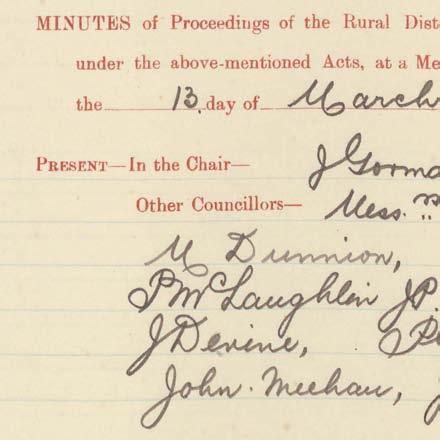 MINUTES of Proceedings of the Rural Dist
under the above-mentioned Acts, at a Me
the 13. day of March
PRESENT—In the Chair— J Gorma
Other Councillors— Mess. rs
M Dunnion,
P McLaughlin J.P.
J Devine, P
John Meehan, J